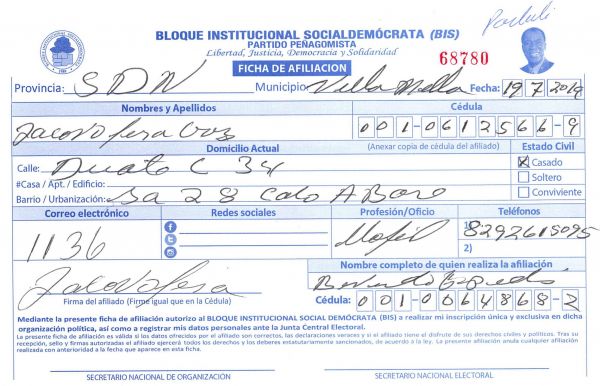 BLOQUE INSTITUCIONAL SOCIALDEMÓCRATA (BIS)
PARTIDO PEÑAGOMISTA
Libertad, Justicia, Democracia y Solidaridad
68780
FICHA DE AFILIACION
Provincia: SDN Municipio: Villa Mella Fecha: 19 7 2019
Nombres y Apellidos Cédula
Jacobo 001-0612566-9
Domicilio Actual (Anexar copia de cédula del afiliado) Estado Civil
Calle: Duarte C 34 X Casado
#Casa / Apt. / Edificio: Soltero
Barrio / Urbanización: 28 Conviviente
Correo electrónico Redes sociales Profesión/Oficio Teléfonos
1136 1) 8292615095
2)
Nombre completo de quien realiza la afiliación
Firma del afiliado (Firme igual que en la Cédula) Cédula: 001-0064868-2
Mediante la presente ficha de afiliación autorizo al BLOQUE INSTITUCIONAL SOCIAL DEMÓCRATA (BIS) a realizar mi inscripción única y exclusiva en dicha
organización política, así como a registrar mis datos personales ante la Junta Central Electoral.
La presente ficha de afiliación es válida si los datos ofrecidos por el afiliado son correctos, las declaraciones veraces y si el afiliado tiene el disfrute de sus derechos civiles y políticos. Tras su
recepción, sello y firmas autorizadas el afiliado ejercerá todos los derechos y los deberes estatutariamente sancionados, de acuerdo a la ley. La presente afiliación anula cualquier afiliación
realizada con anterioridad a la fecha que aparece en esta ficha.
SECRETARIO NACIONAL DE ORGANIZACIÓN SECRETARIO NACIONAL ELECTORAL